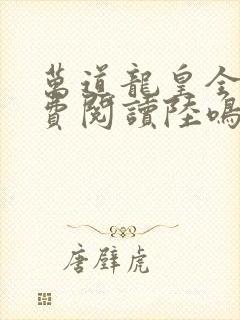 萬道龍皇全
費閱讀陸鳴
唐壁虎